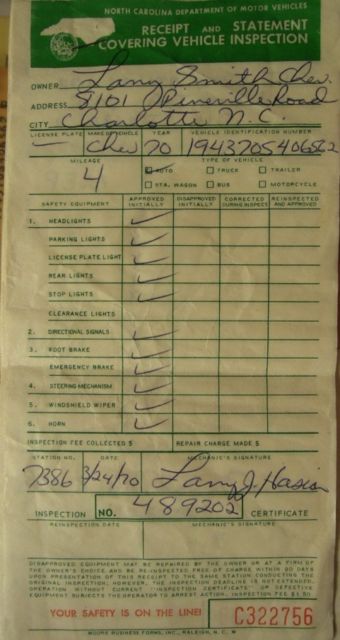 NORTH CAROLINA DEPARTMENT OF MOTOR VEHICLES
RECEIPT and STATEMENT
COVERING VEHICLE INSPECTION
OWNER Larry Smith Chev.
ADDRESS 8101 Pineville Road
CITY Charlotte N.C.
LICENSE PLATE MAKE OF VEHICLE YEAR VEHICLE IDENTIFICATION NUMBER
— Chev 70 194370S406562
MILEAGE TYPE OF VEHICLE
4 AUTO TRUCK TRAILER
STA. WAGON BUS MOTORCYCLE
SAFETY EQUIPMENT APPROVED INITIALLY DISAPPROVED INITIALLY CORRECTED DURING INSPECT. REINSPECTED AND APPROVED
1. HEADLIGHTS
PARKING LIGHTS
LICENSE PLATE LIGHT
REAR LIGHTS
STOP LIGHTS
CLEARANCE LIGHTS
2. DIRECTIONAL SIGNALS
3. FOOT BRAKE
EMERGENCY BRAKE
4. STEERING MECHANISM
5. WINDSHIELD WIPER
6. HORN
INSPECTION FEE COLLECTED $ REPAIR CHARGE MADE $
STATION NO. DATE MECHANIC'S SIGNATURE
7386 3/24/70 Larry J.
INSPECTION NO. 489202 CERTIFICATE
REINSPECTION DATE MECHANIC'S SIGNATURE
DISAPPROVED EQUIPMENT MAY BE REPAIRED BY THE OWNER OR AT A FIRM OF
THE OWNER'S CHOICE AND BE RE-INSPECTED FREE OF CHARGE WITHIN 90 DAYS
UPON PRESENTATION OF THIS RECEIPT TO THE SAME STATION CONDUCTING THE
ORIGINAL INSPECTION; HOWEVER, THE INSPECTION DEADLINE IS NOT EXTENDED.
OPERATION WITHOUT CURRENT "INSPECTION CERTIFICATE" OR DEFECTIVE
EQUIPMENT SUBJECTS THE OPERATOR TO ARREST ACTION. INSPECTION FEE $1.50
YOUR SAFETY IS ON THE LINE! C322756
MOORE BUSINESS FORMS, INC., RALEIGH, N.C.